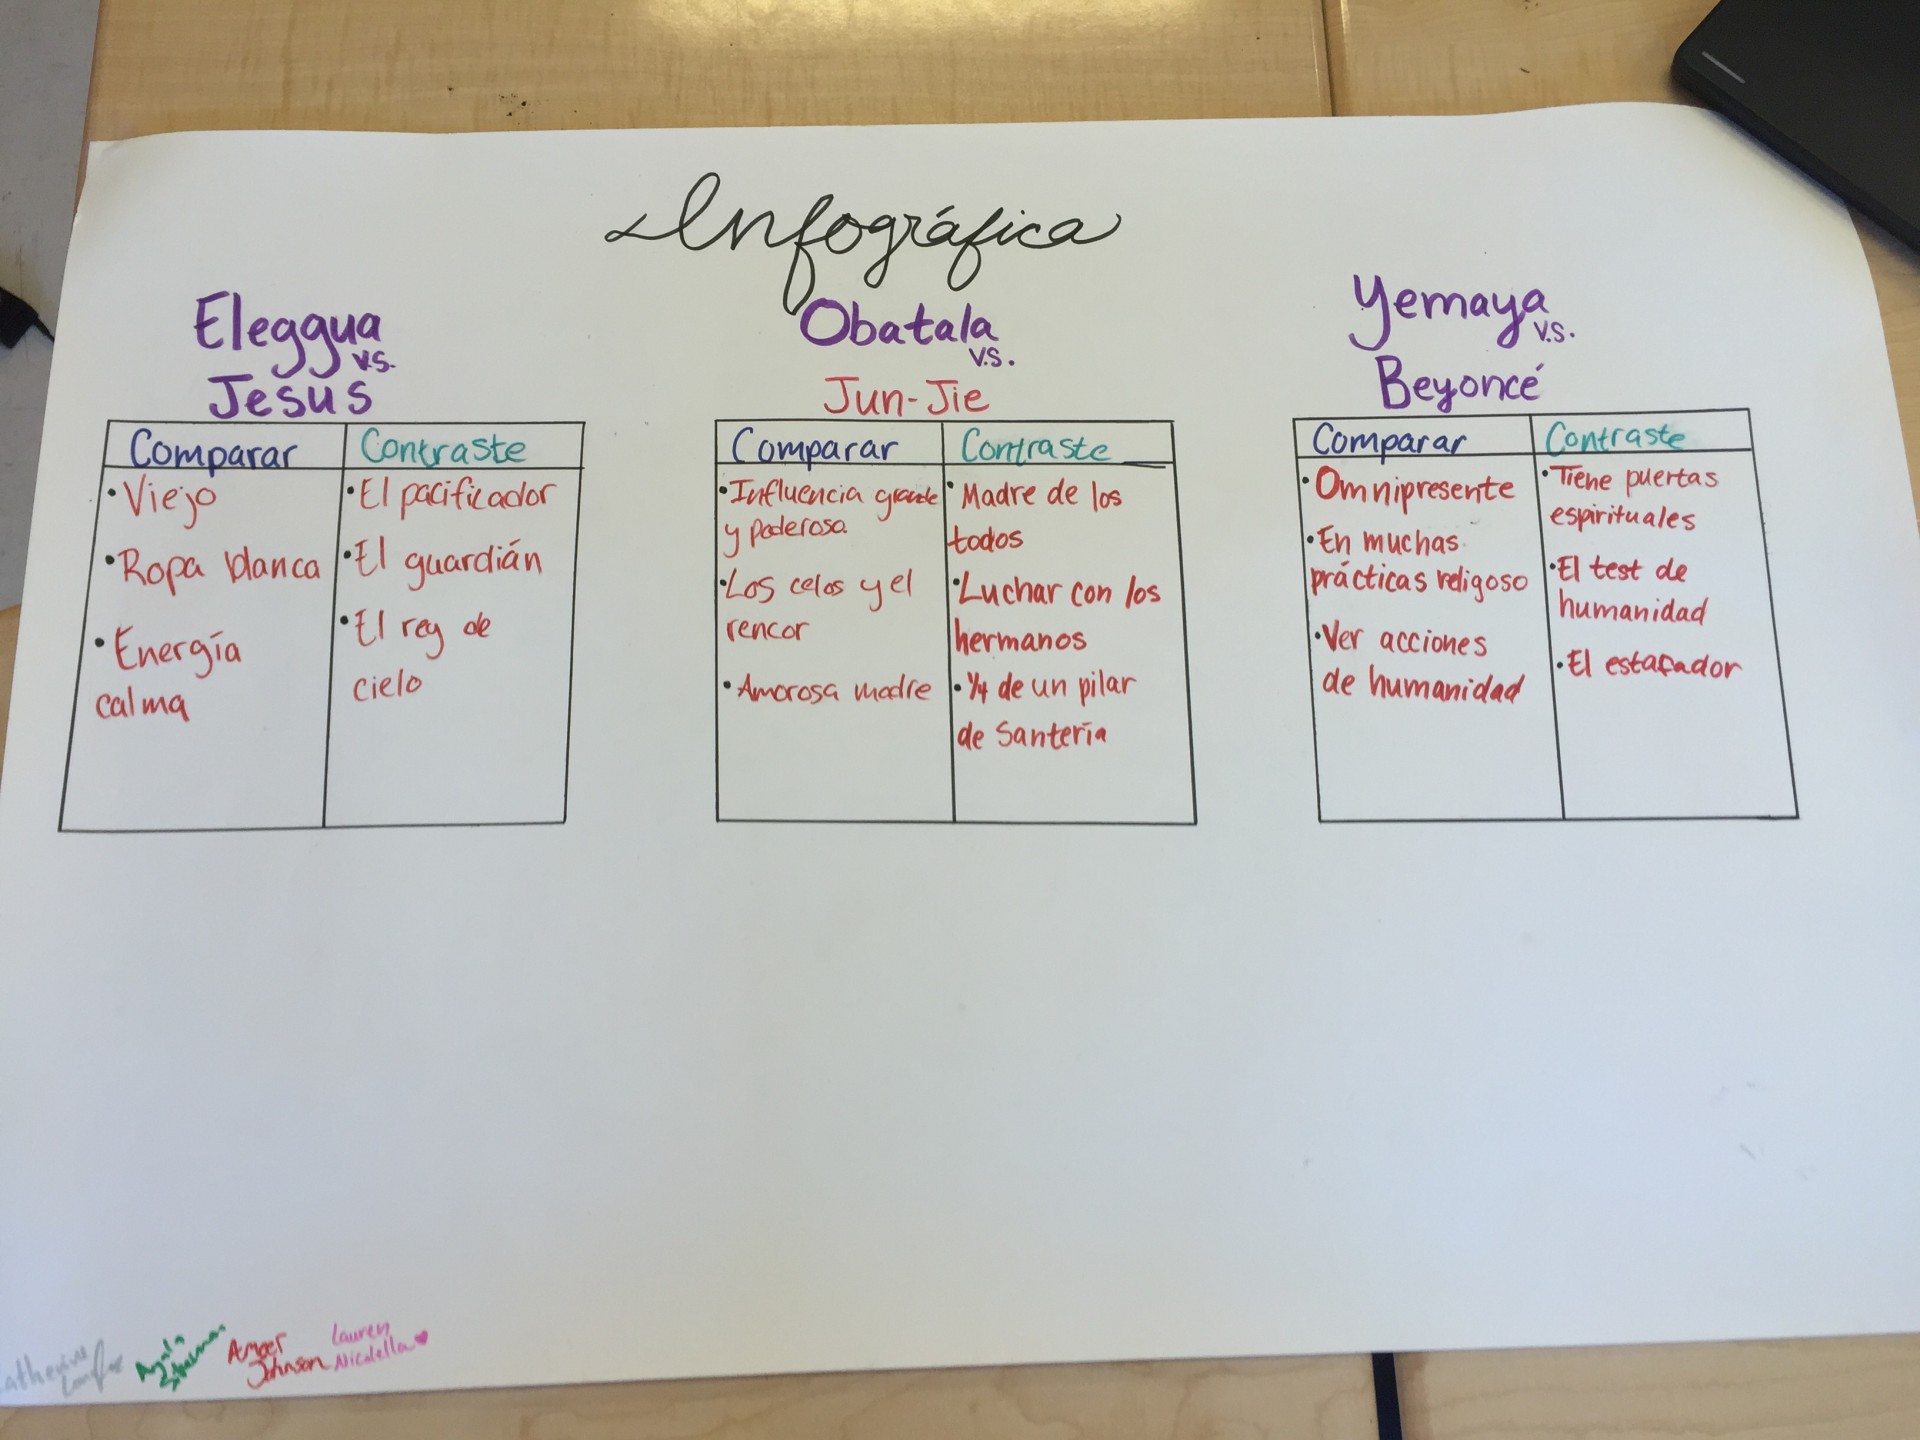 Infográfica
Eleggua
v.s.
Jesus
Comparar
Contraste
•Viejo
•Ropa blanca
•Energía
calma
•El pacificador
•El guardián
•El rey de
cielo
Obatala
v.s.
Jun-Jie
Comparar
Contraste
•Influencia grande
y poderosa
•Los celos y el
rencor
•Amorosa madre
•Madre de los
todos
•Luchar con los
hermanos
•1/4 de un pilar
de Santería
Yemaya
v.s.
Beyoncé
Comparar
Contraste
•Omnipresente
•En muchas
prácticas religioso
•Ver acciones
de humanidad
•Tiene puertas
espirituales
•El test de
humanidad
•El estafador
Amber
Johnson
Lauren
Nicolella